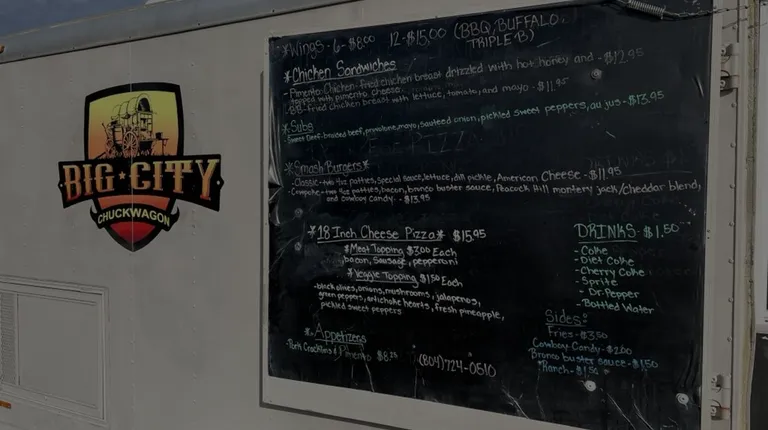 BIG CITY
CHUCKWAGON
*Wings - 6 - $8.00 12 - $15.00 (BBQ, BUFFALO,
TRIPLE B)
*Chicken Sandwiches
- Pimento Chicken - fried chicken breast drizzled with hot honey and - $12.95
topped with pimento cheese
- BB - fried chicken breast with lettuce, tomato, and mayo - $11.95
*Subs
Sweet Beef - braised beef, provolone, mayo, sauteed onion, pickled sweet peppers, au jus - $13.95
*Smash Burgers*
- Classic - two 4oz patties, special sauce, lettuce, dill pickle, American Cheese - $11.95
- Cowpoke - two 4oz patties, bacon, bronco buster sauce, Peacock Hill montery jack/cheddar blend,
and cowboy candy - $13.95
*18 Inch Cheese Pizza* $15.95
*Meat Topping $3.00 Each
bacon, sausage, pepperoni
*Veggie Topping $1.50 Each
- black olives, onions, mushrooms, jalapenos,
green peppers, artichoke hearts, fresh pineapple,
pickled sweet peppers
*Appetizers
Pork Cracklins & Pimento
(804)724-0610
DRINKS - $1.50
- Coke
- Diet Coke
- Cherry Coke
- Sprite
- Dr. Pepper
- Bottled Water
Sides:
Fries - $3.50
Cowboy Candy - $2.00
Bronco buster sauce - $1.50
Ranch - $1.50